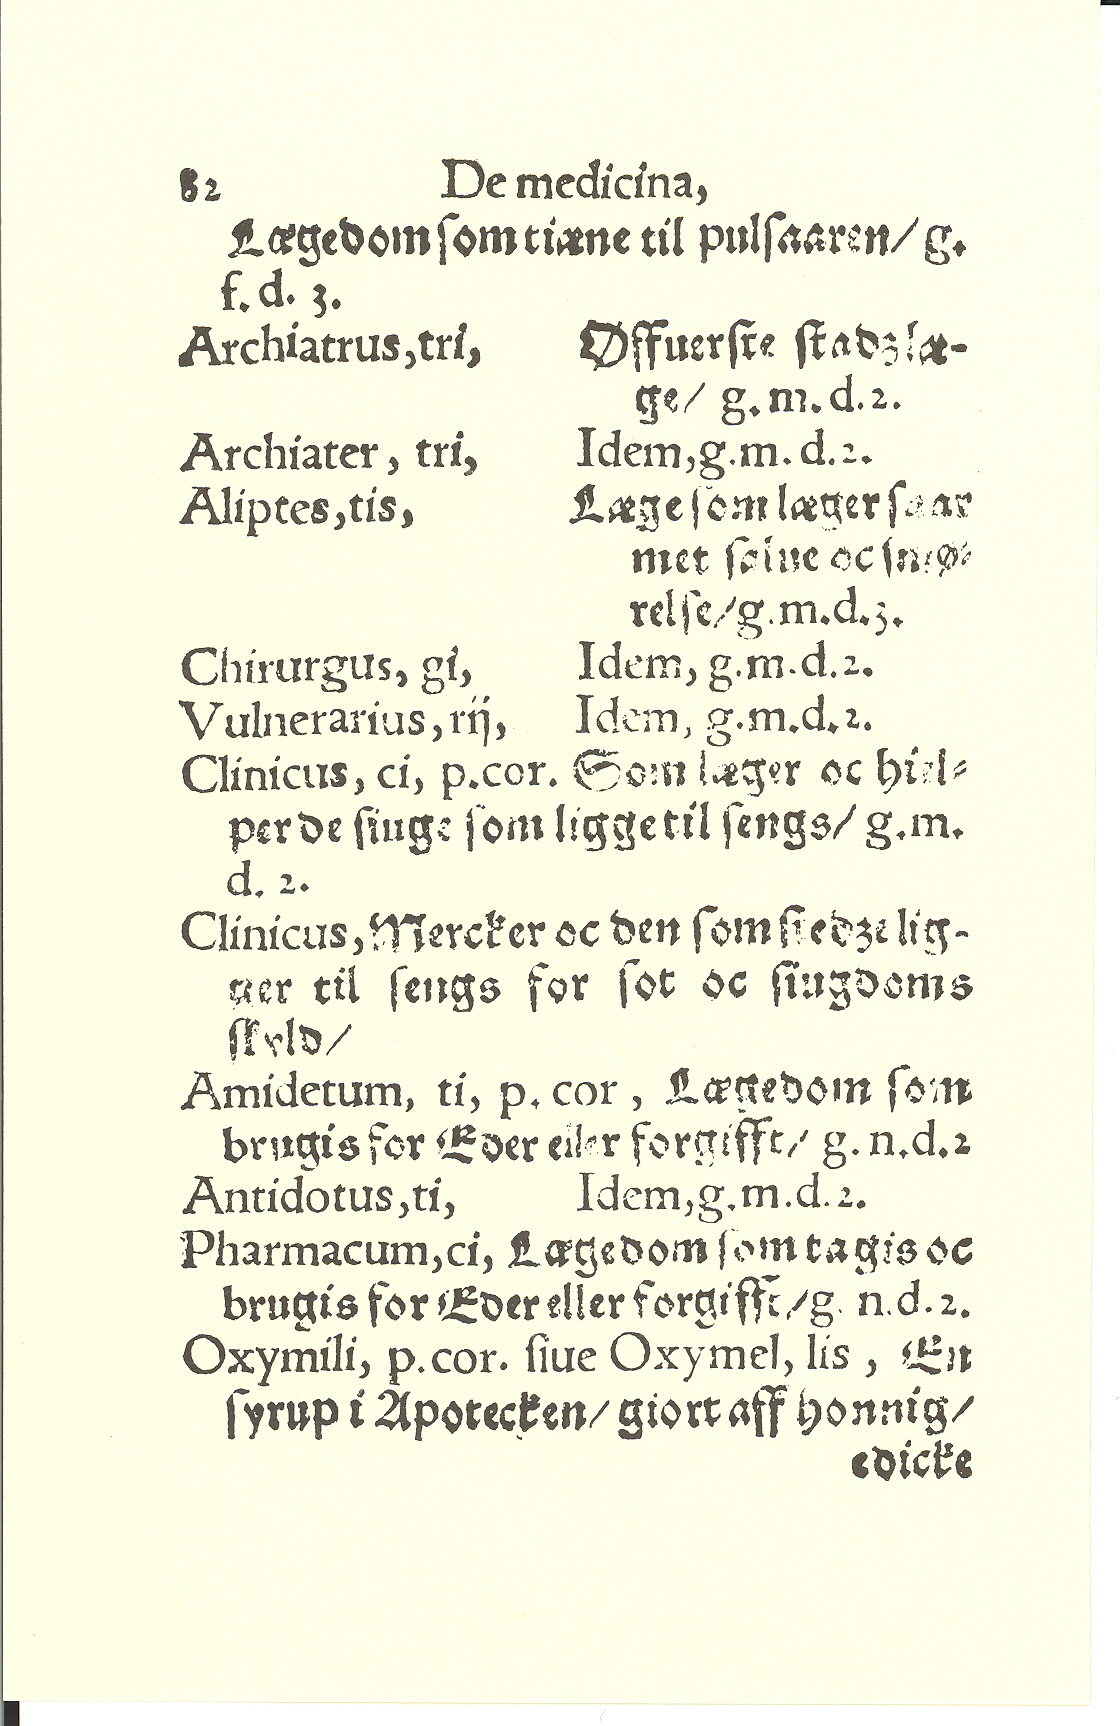 82 De medicina,
Lægedom som tiæne til pulsaaren/ g.
f. d. 3.
Archiatrus, tri, Øffuerste stadzlæ-
ge/ g. m. d. 2.
Archiater, tri, Idem, g. m. d. 2.
Aliptes, tis, Læge som læger saar
met salue oc smø-
relse/ g. m. d. 3.
Chirurgus, gi, Idem, g. m. d. 2.
Vulnerarius, rij, Idem, g. m. d. 2.
Clinicus, ci, p. cor. Som læger oc hiel-
per de siuge som ligge til sengs/ g. m.
d. 2.
Clinicus, Mercker oc den som stedze lig-
ger til sengs for sot oc siugdoms
skyld/
Amidetum, ti, p. cor, Lægedom som
brugis for Eder eller forgifft/ g. n. d. 2
Antidotus, ti, Idem, g. m. d. 2.
Pharmacum, ci, Lægedom som tagis oc
brugis for Eder eller forgifft/ g. n. d. 2.
Oxymili, p. cor. siue Oxymel, lis, En
syrup i Apotecken/ giort aff honnig/
edicke